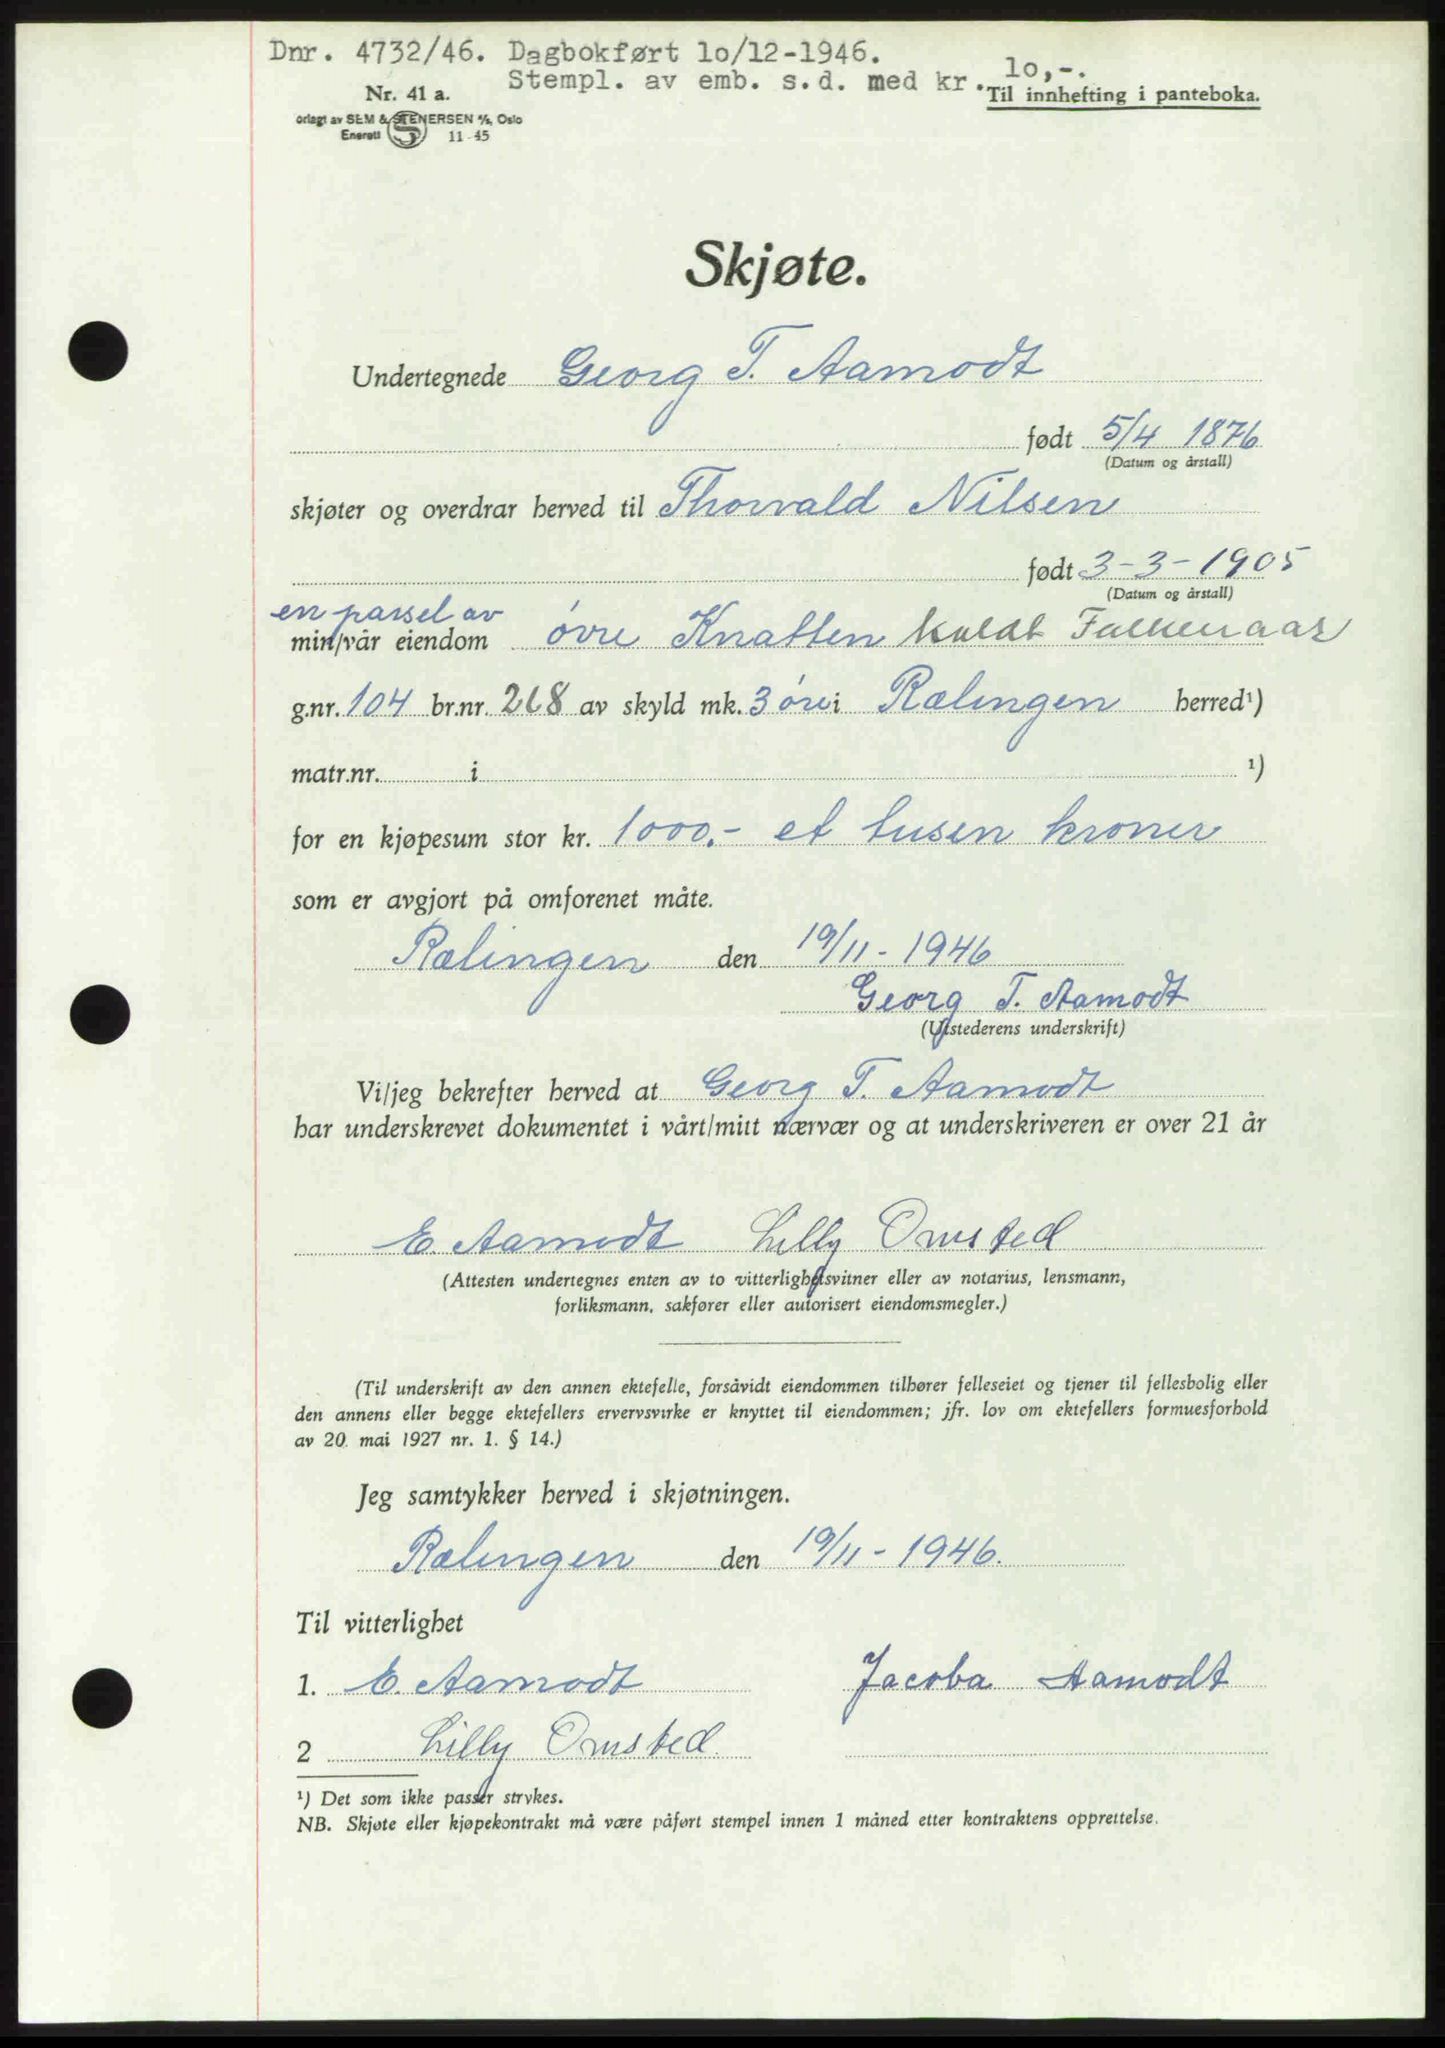 Dnr. 4732/46. Dagbokført 10/12-1946.
Stempl. av emb. s.d. med kr. 10,-.
Nr. 41 a.
Til innhefting i panteboka.
orlagt av SEM & STENERSEN A/S, Oslo
Enerett 11-45
Skjøte.
Undertegnede Georg T. Aamodt
født 5/4 1876
(Datum og årstall)
skjøter og overdrar herved til Thorvald Nilsen
født 3-3-1905
(Datum og årstall)
en parsel av
min/vår eiendom øvre Knatten kaldt
g.nr. 104 br.nr. 268 av skyld mk. 3 øre i Rælingen herred¹)
matr.nr. i ¹)
for en kjøpesum stor kr. 1000.- et tusen kroner
som er avgjort på omforenet måte.
Rælingen den 19/11-1946
Georg T. Aamodt
(Utstederens underskrift)
Vi/jeg bekrefter herved at Georg T. Aamodt
har underskrevet dokumentet i vårt/mitt nærvær og at underskriveren er over 21 år
E. Aamodt Lilly Omsted
(Attesten undertegnes enten av to vitterlighetsvitner eller av notarius, lensmann,
forliksmann, sakfører eller autorisert eiendomsmegler.)
(Til underskrift av den annen ektefelle, forsåvidt eiendommen tilhører felleseiet og tjener til fellesbolig eller
den annens eller begge ektefellers ervervsvirke er knyttet til eiendommen; jfr. lov om ektefellers formuesforhold
av 20. mai 1927 nr. 1. § 14.)
Jeg samtykker herved i skjøtningen.
Rælingen den 19/11-1946.
Til vitterlighet
1. E. Aamodt Jacoba Aamodt
2 Lilly Omsted
¹) Det som ikke passer strykes.
NB. Skjøte eller kjøpekontrakt må være påført stempel innen 1 måned etter kontraktens opprettelse.